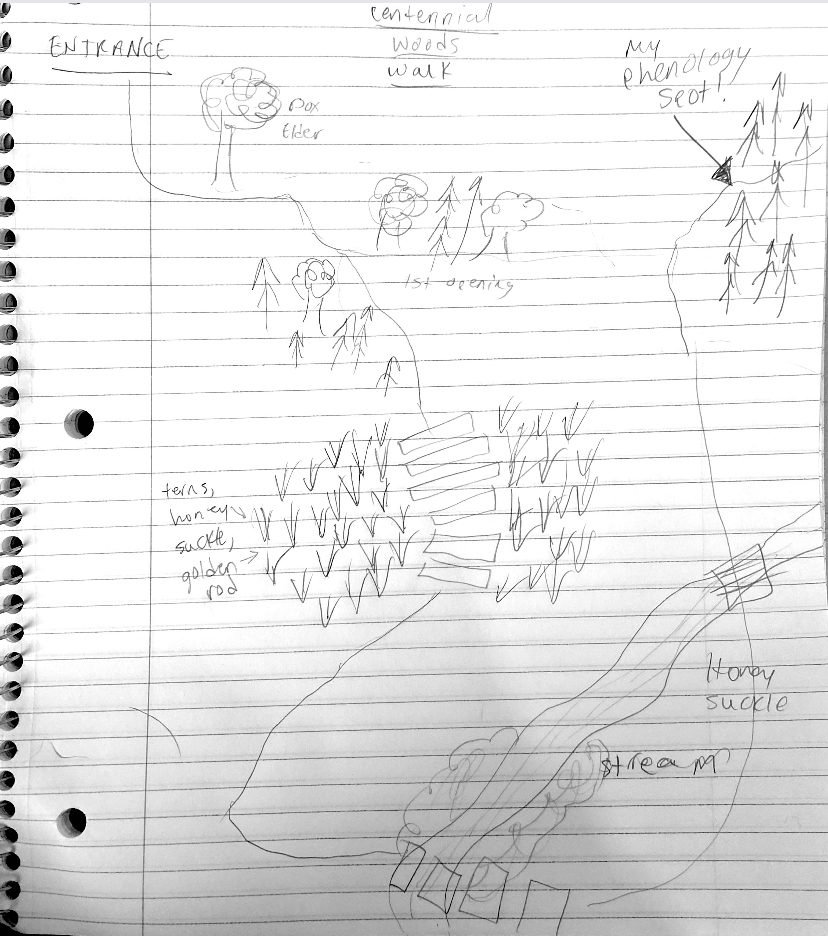 centennial
woods
walk
ENTRANCE
Box
Elder
My
phenology
spot!
1st opening
ferns,
honey
suckle,
golden
rod
Honey
suckle
stream